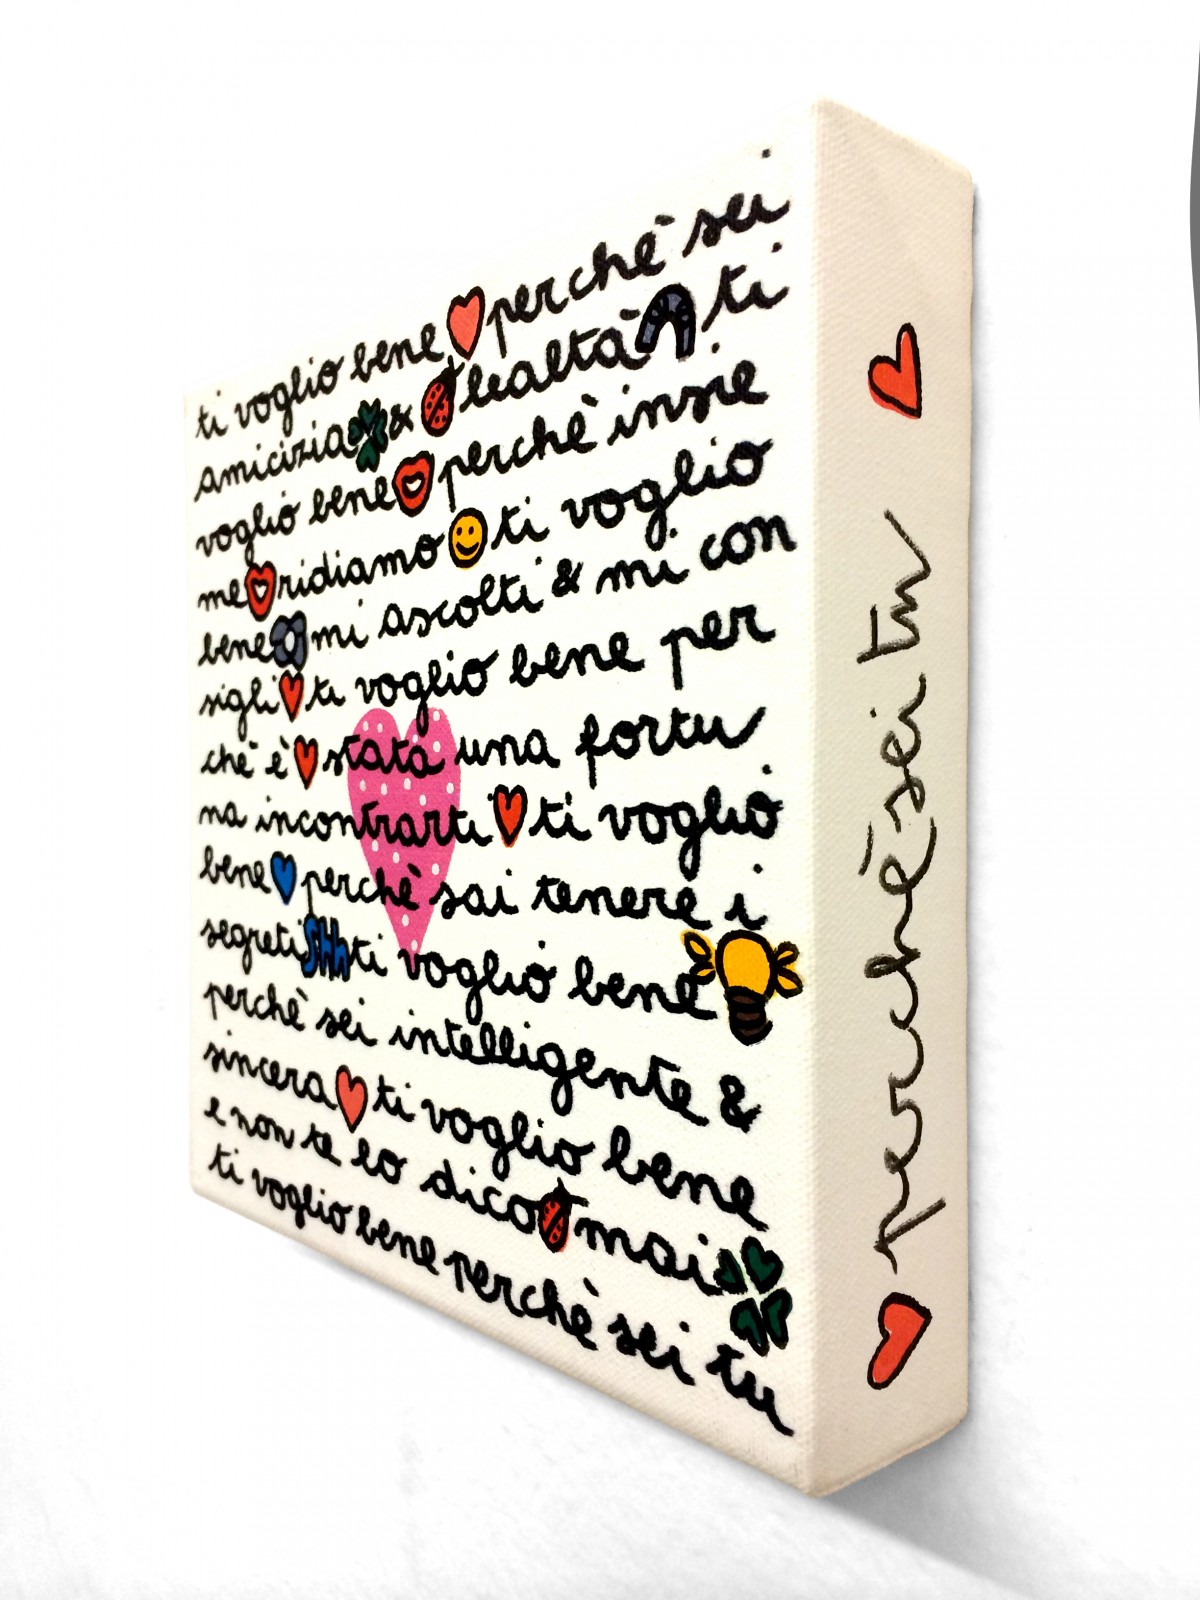 ti voglio bene perchè sei
amicizia & lealtà ti
voglio bene perchè insie
me ridiamo ti voglio
bene mi ascolti & mi con
sigli ti voglio bene per
chè è stata una fortu
na incontrarti ti voglio
bene perchè sai tenere i
segreti shh ti voglio bene
perchè sei intelligente &
sincera ti voglio bene
e non te lo dico mai
ti voglio bene perchè sei tu
perchè sei tu